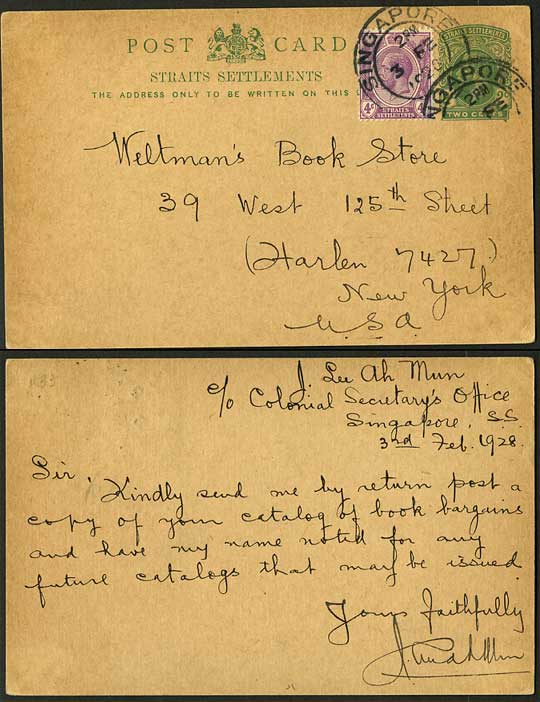 POST CARD
STRAITS SETTLEMENTS
THE ADDRESS ONLY TO BE WRITTEN ON THIS
SINGAPORE
2 PM
3 FE
1928
4c
STRAITS SETTLEMENTS
STRAITS SETTLEMENTS
TWO CENTS
NGAPORE
2 PM
Weltman's Book Store
39 West 125th Street
(Harlen 7427)
New York
U.S.A
J. Lee Ah Mun
c/o Colonial Secretary's Office
Singapore, S.S.
3rd Feb. 1928.
Sir,
Kindly send me by return post a
copy of your catalog of book bargains
and have my name noted for any
future catalogs that may be issued
Yours faithfully